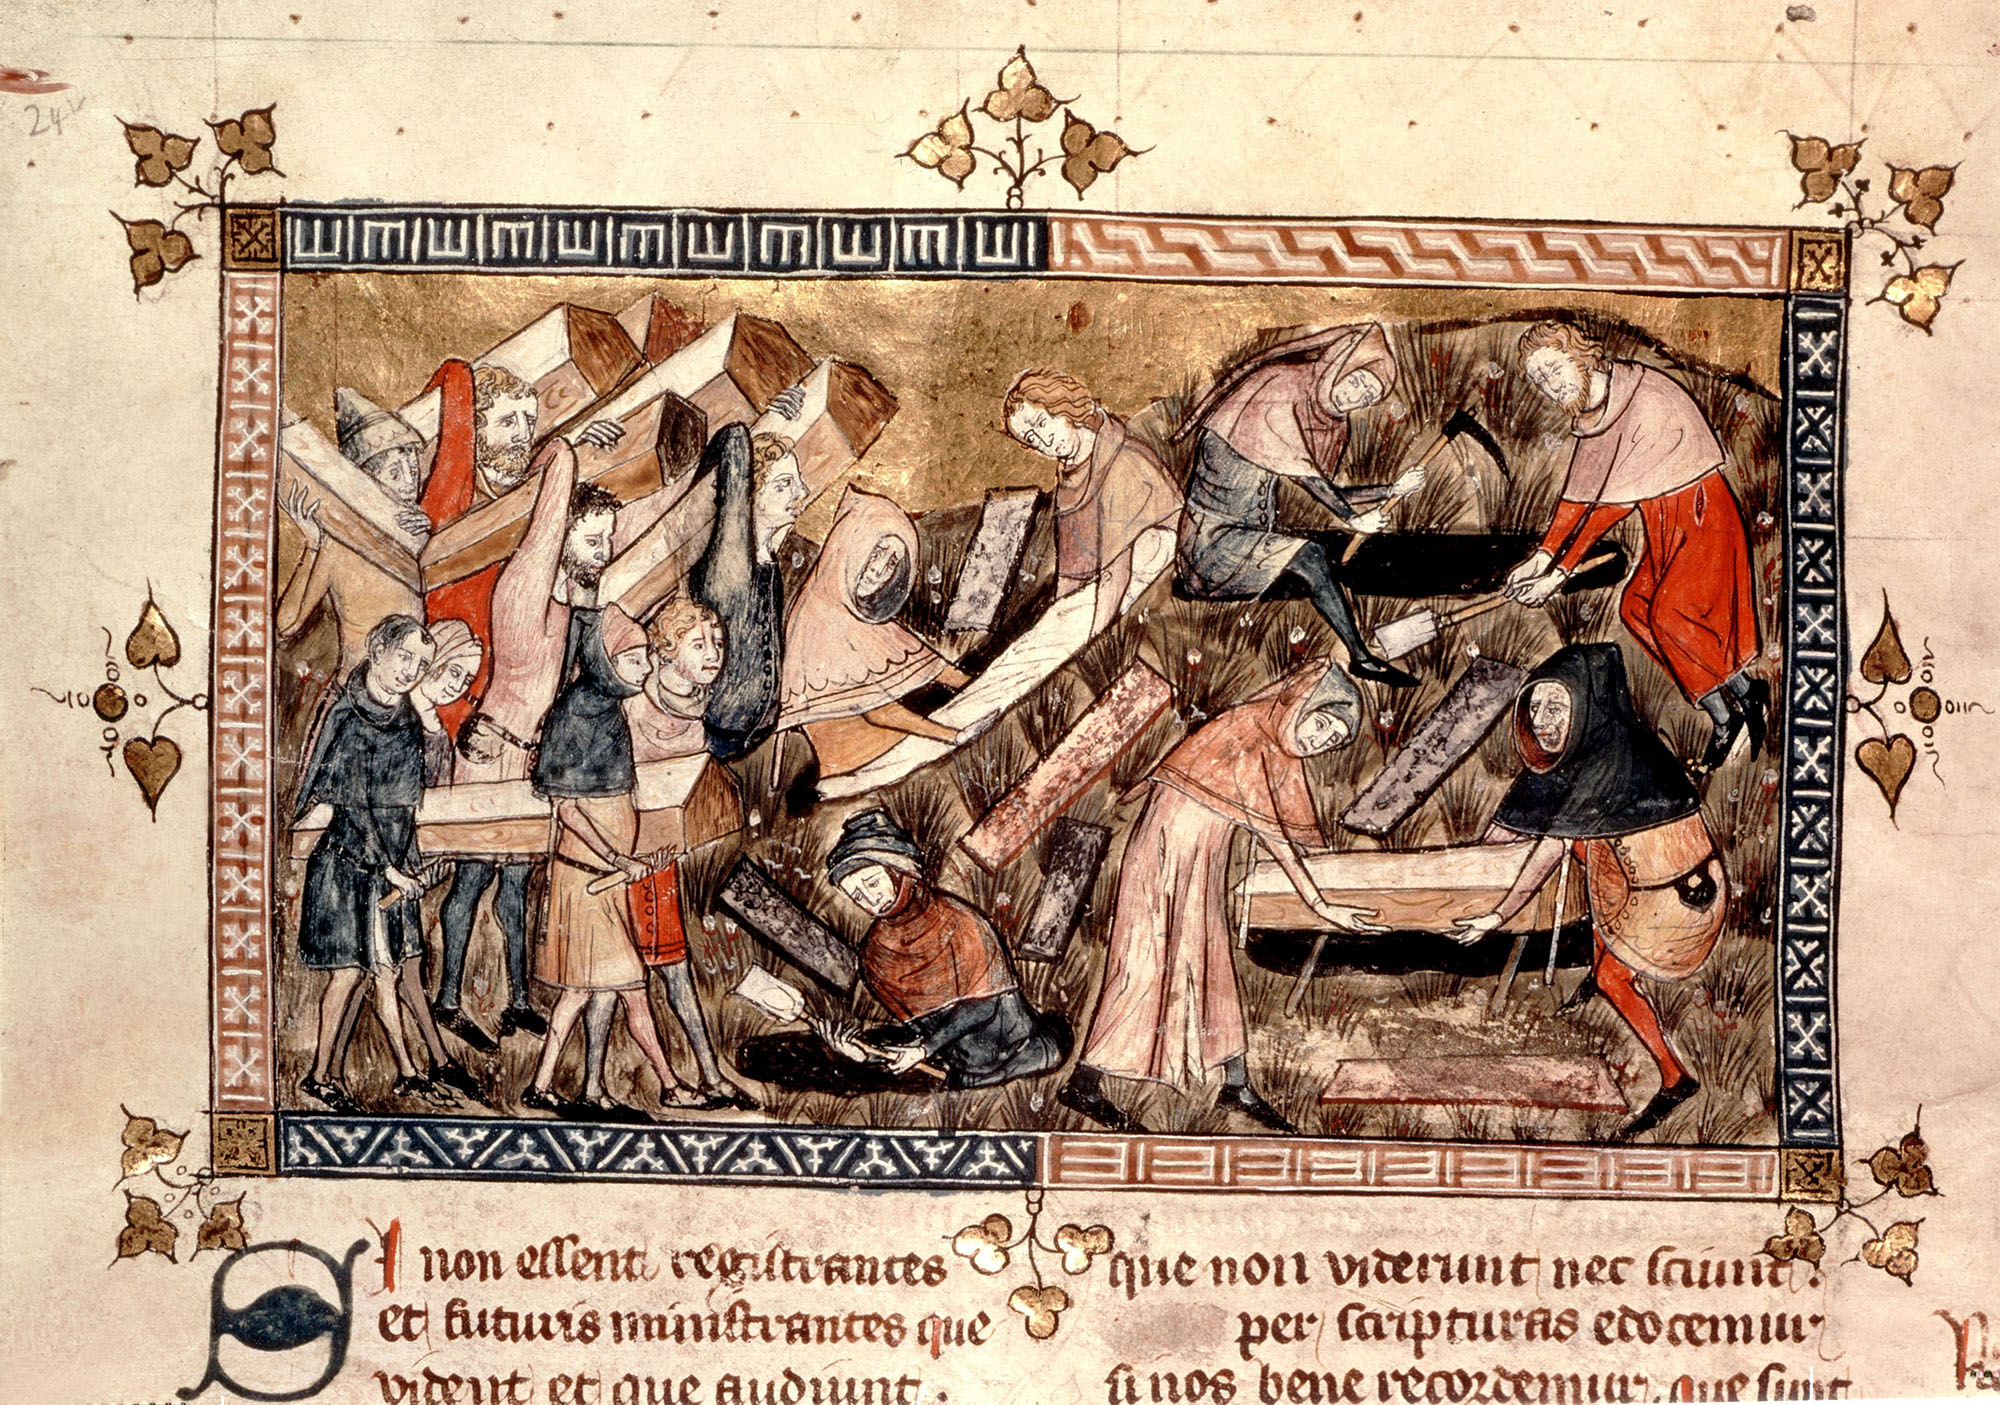 24v
SI non essent registrantes
et futuris ministrantes que
vident et que audiunt.
que non viderunt nec sciunt.
per scripturas edocemur
si nos bene recordemur. que sunt